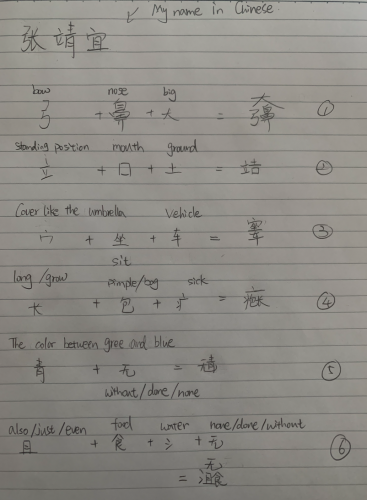 My name in Chinese
张靖宜
bow nose big
弓 + 鼻 + 大 = ①
standing position mouth ground
立 + 口 + 土 = ②
Cover like the umbrella vehicle
宀 + 坐 + 车 = ③
sit
long/grow pimple/bag sick
长 + 包 + 疒 = ④
The color between gree and blue
青 + 无 = ⑤
without/done/none
also/just/even food water none/done/without
且 + 食 + 氵 + 无 ⑥
=